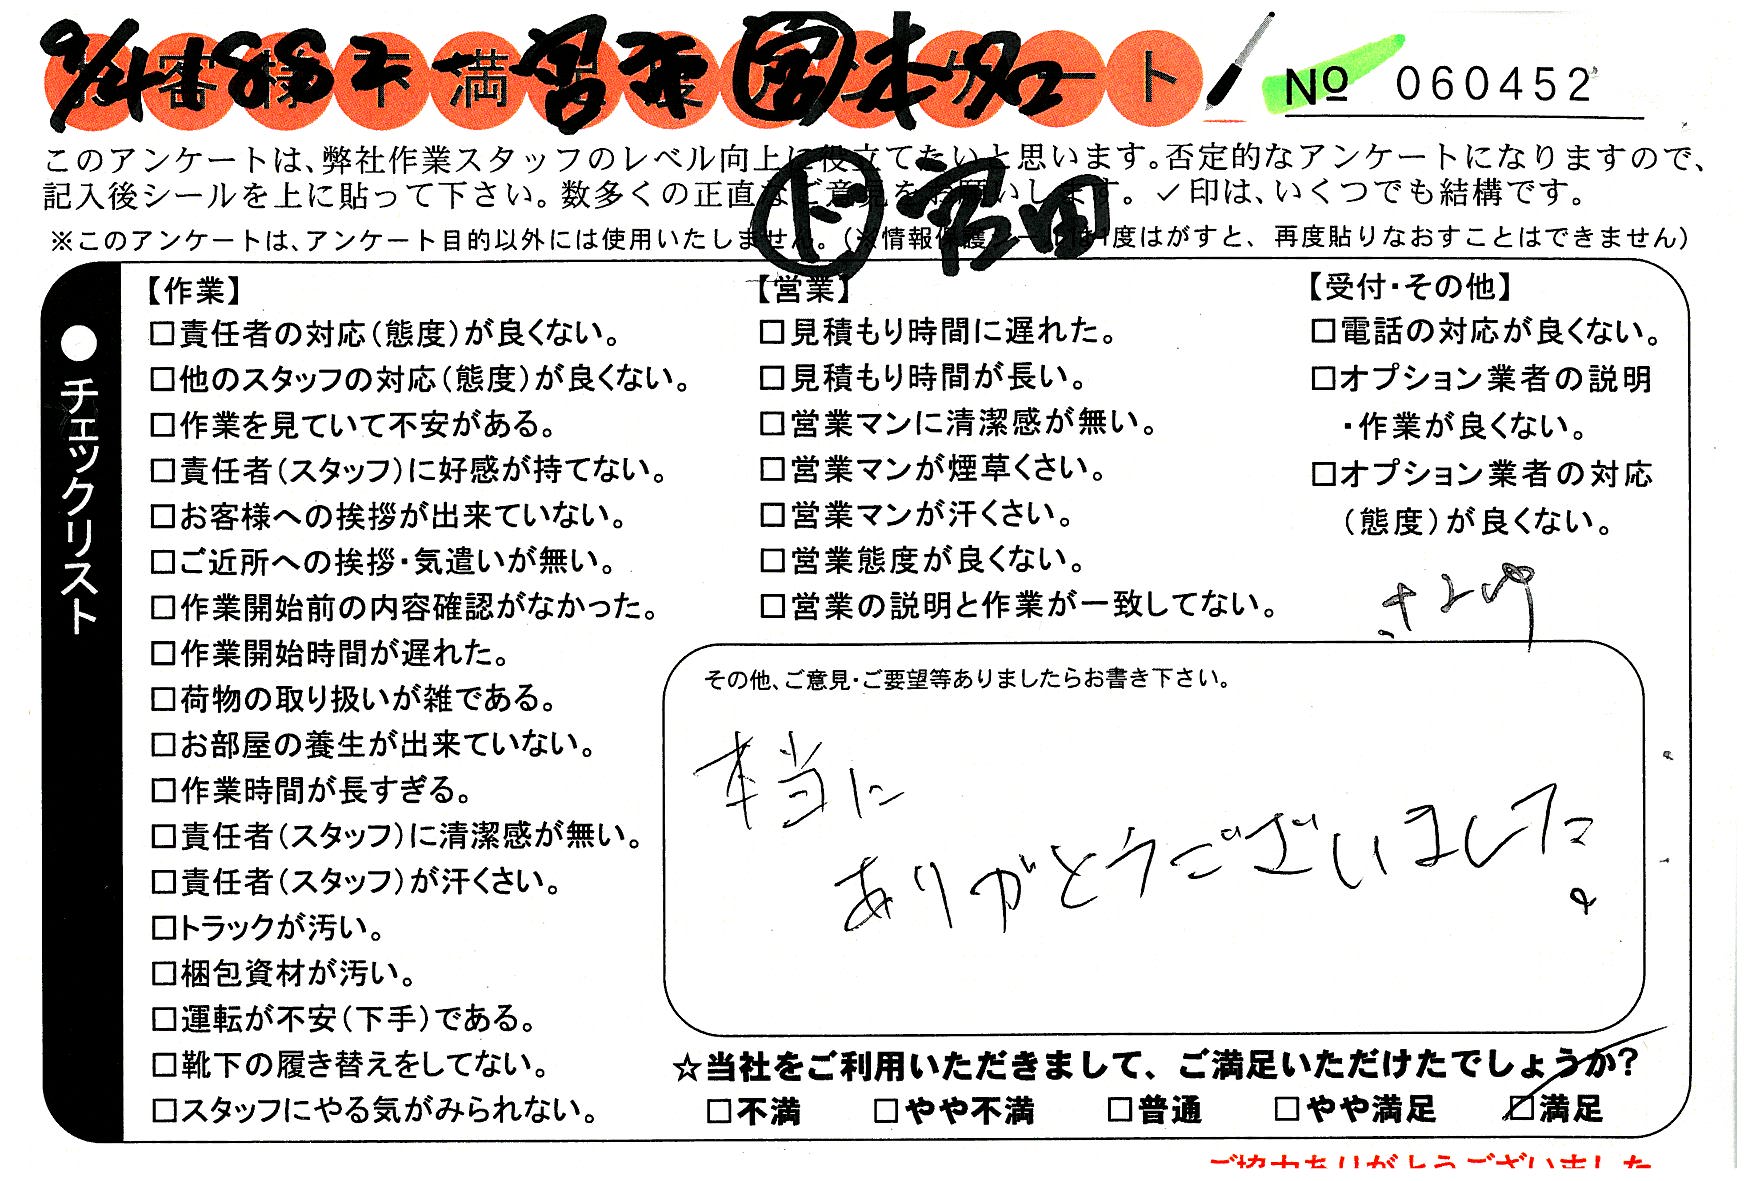 お客様不満足度アンケート
No 060452
このアンケートは、弊社作業スタッフのレベル向上に役立てたいと思います。否定的なアンケートになりますので、
記入後シールを上に貼って下さい。数多くの正直なご意見をお願いします。✓印は、いくつでも結構です。
※このアンケートは、アンケート目的以外には使用いたしません。(※情報保護シールは1度はがすと、再度貼りなおすことはできません)
宮田
●チェックリスト
【作業】
□責任者の対応(態度)が良くない。
□他のスタッフの対応(態度)が良くない。
□作業を見ていて不安がある。
□責任者(スタッフ)に好感が持てない。
□お客様への挨拶が出来ていない。
□ご近所への挨拶・気遣いが無い。
□作業開始前の内容確認がなかった。
□作業開始時間が遅れた。
□荷物の取り扱いが雑である。
□お部屋の養生が出来ていない。
□作業時間が長すぎる。
□責任者(スタッフ)に清潔感が無い。
□責任者(スタッフ)が汗くさい。
□トラックが汚い。
□梱包資材が汚い。
□運転が不安(下手)である。
□靴下の履き替えをしてない。
□スタッフにやる気がみられない。
【営業】
□見積もり時間に遅れた。
□見積もり時間が長い。
□営業マンに清潔感が無い。
□営業マンが煙草くさい。
□営業マンが汗くさい。
□営業態度が良くない。
□営業の説明と作業が一致してない。
【受付・その他】
□電話の対応が良くない。
□オプション業者の説明
・作業が良くない。
□オプション業者の対応
(態度)が良くない。
その他、ご意見・ご要望等ありましたらお書き下さい。
本当に
ありがとうございました。
☆当社をご利用いただきまして、ご満足いただけたでしょうか?
□不満 □やや不満 □普通 □やや満足 ☑満足
ご協力ありがとうございました